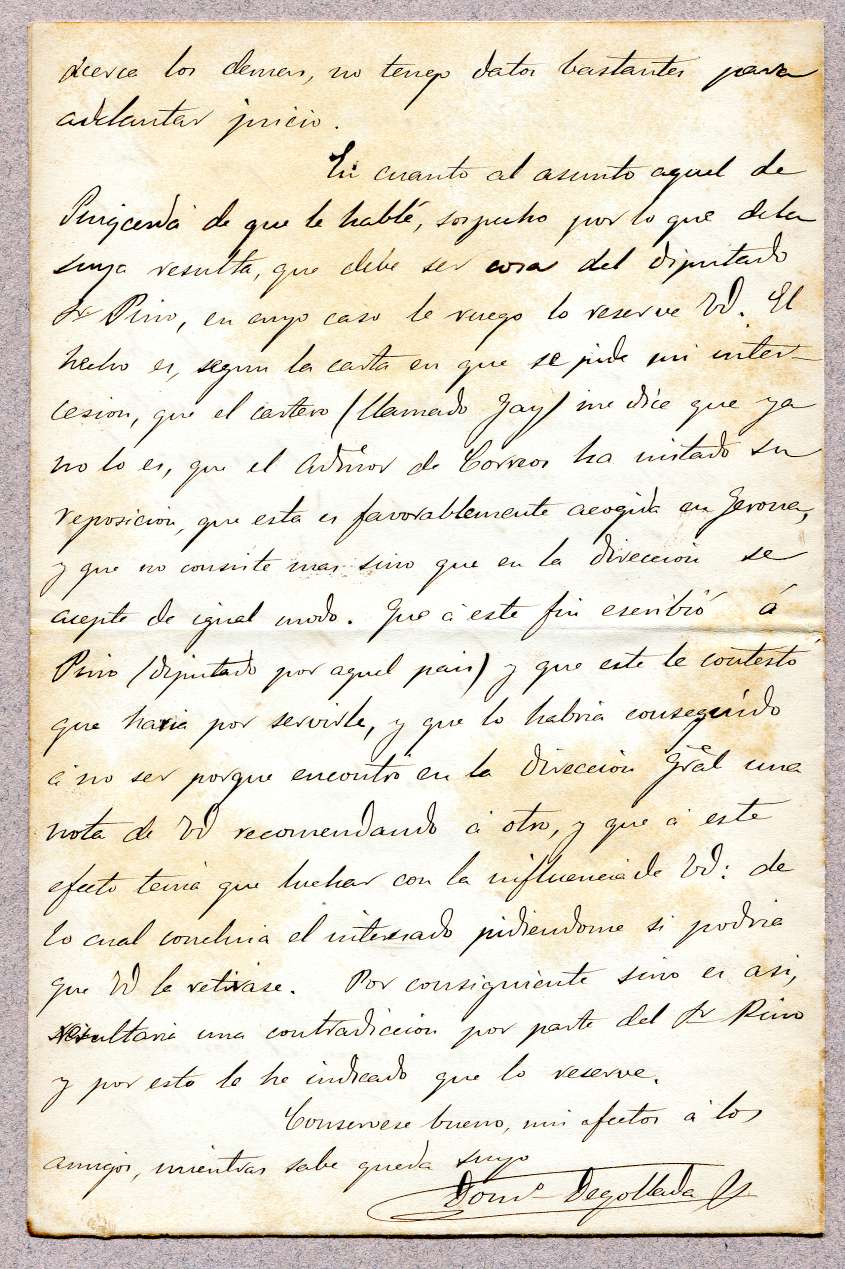 acerca los demas, no tengo datos bastantes para
adelantar juicio.
En cuanto al asunto aquel de
Puigcerdá de que le hablé, sospecho por lo que de la
suya resulta, que debe ser cosa del diputado
Sr Pino, en cuyo caso le ruego lo reserve Vd. El
hecho es, segun la carta en que se pide mi inter-
cesion, que el cartero (llamado Jay) me dice que ya
no lo es, que el Admor de Correos ha instado su
reposicion, que esta es favorablemente acogida en Gerona,
y que no consiste mas sino que en la direccion se
acepte de igual modo. Que á este fin escribió á
Pino (diputado por aquel pais) y que este le contestó
que haria por servirle, y que lo habria conseguido
á no ser porque encontró en la Direccion Gral una
nota de Vd recomendando á otro, y que á este
efecto tenia que luchar con la influencia de Vd: de
lo cual concluia el interesado pidiendome si podria
que Vd la retirase. Por consiguiente sino es asi,
resultaria una contradiccion por parte del Sr Pino
y por esto le he indicado que lo reserve.
Conservese bueno, mis afectos á los
amigos, mientras sabe queda suyo
Domo Degollada